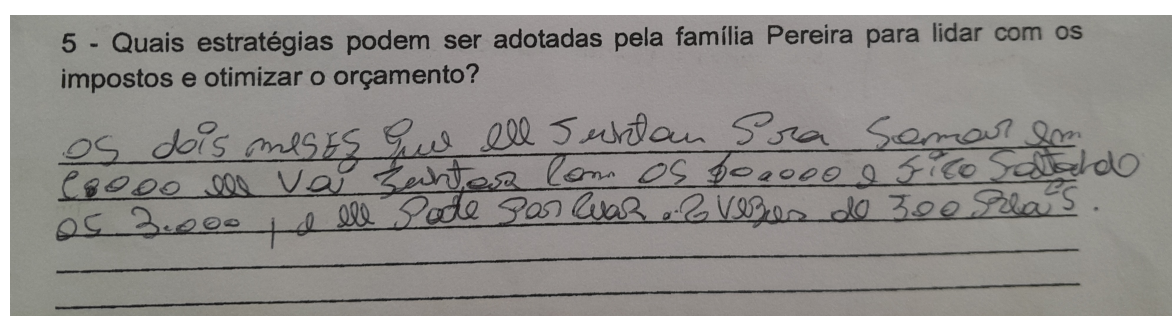 5 - Quais estratégias podem ser adotadas pela família Pereira para lidar com os
impostos e otimizar o orçamento?
os dois meses que ele Juntou Pra Somar em
ele Vai Juntar com os e fico Faltando
os 3.000, e ele Pode Parcelar vezes de 300 Reais.